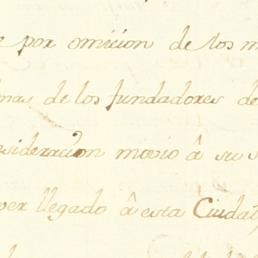 e por omicion de los m
mas de los fundadores de
nsideracion movio â su s
ver llegado â esta Ciudad